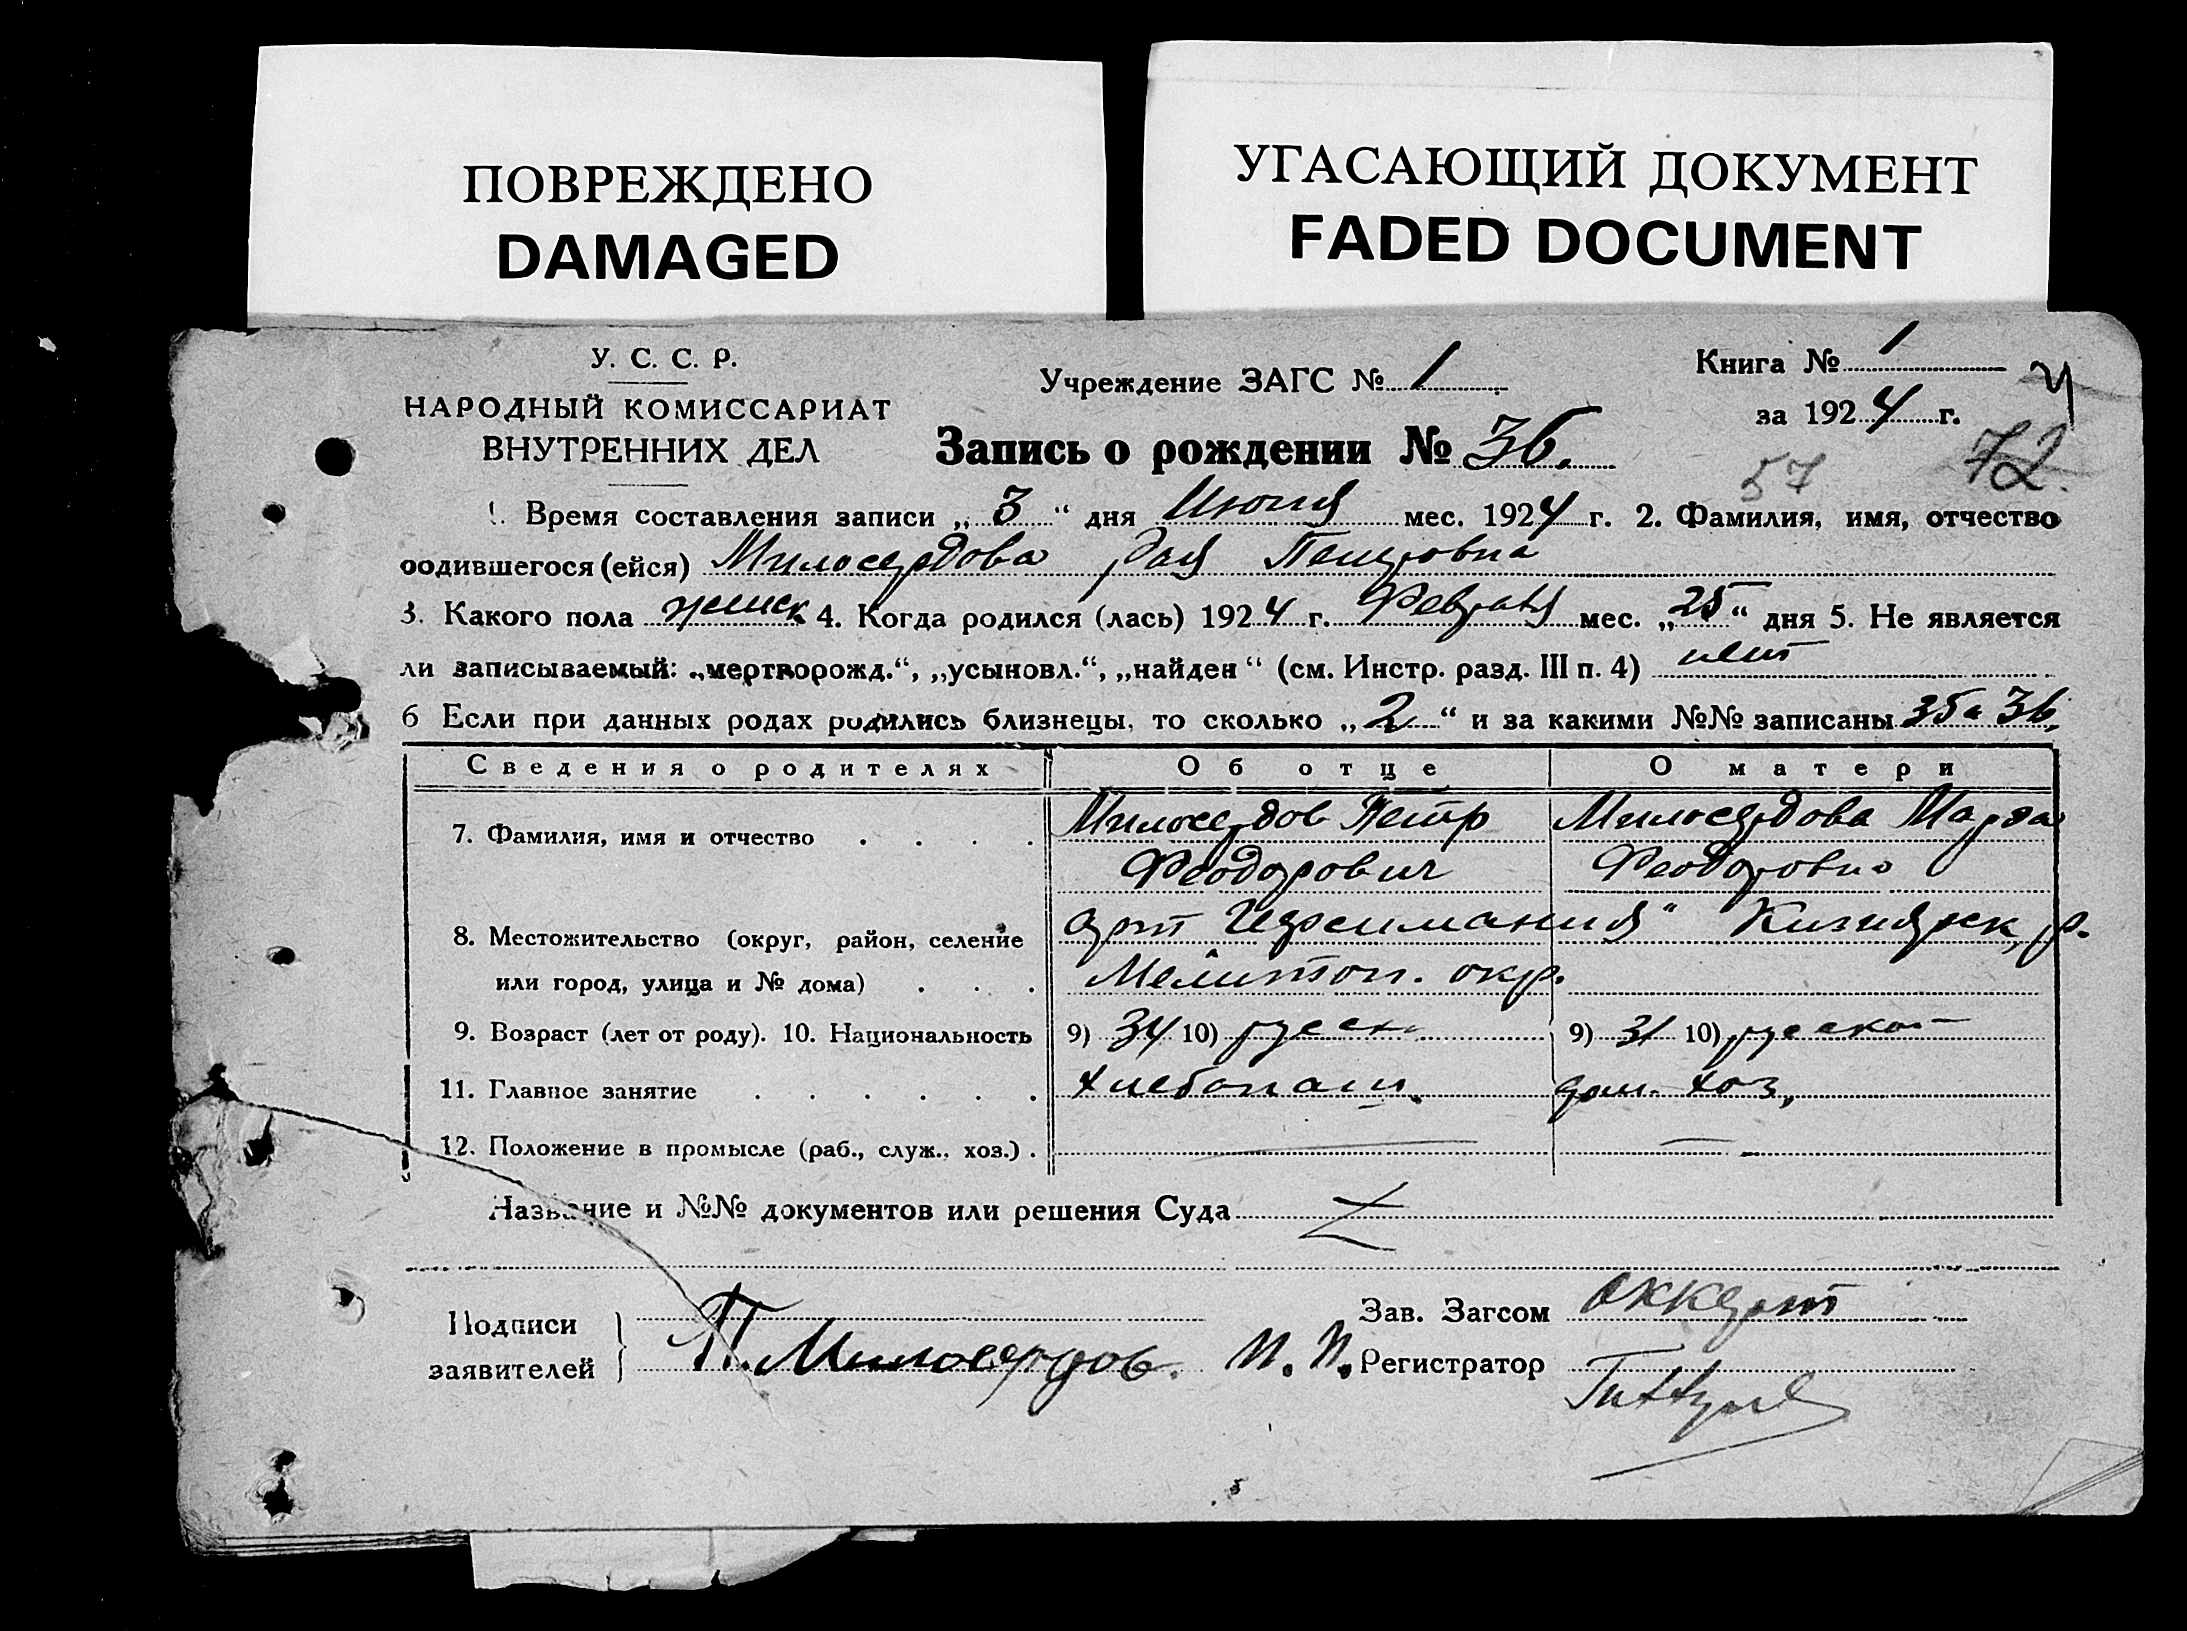 ПОВРЕЖДЕНО
DAMAGED
УГАСАЮЩИЙ ДОКУМЕНТ
FADED DOCUMENT
У. С. С. Р.
НАРОДНЫЙ КОМИССАРИАТ
ВНУТРЕННИХ ДЕЛ
Учреждение ЗАГС № 1
Книга № 1
за 1924 г.
Запись о рождении № 36.
57 72
1. Время составления записи „3“ дня Июня мес. 1924 г. 2. Фамилия, имя, отчество
родившегося (ейся) Милосердова Рая Петровна
3. Какого пола женск 4. Когда родился (лась) 1924 г. Февраля мес. „25“ дня 5. Не является
ли записываемый: „мертворожд.“, „усыновл.“, „найден“ (см. Инстр. разд. III п. 4) нет
6 Если при данных родах родились близнецы, то сколько „2“ и за какими №№ записаны 35 и 36,
Сведения о родителях Об отце О матери
7. Фамилия, имя и отчество . . . . Милосердов Петр Милосердова Марфа
Феодорович Феодоровна
8. Местожительство (округ, район, селение арт „Гефсимания“ Кизиярск, р.
или город, улица и № дома) . . . Мелитоп. окр.
9. Возраст (лет от роду). 10. Национальность 9) 34 10) русск 9) 31 10) русская
11. Главное занятие . . . . . . хлебопаш. дом. хоз,
12. Положение в промысле (раб., служ., хоз.) . — —
Название и №№ документов или решения Суда
Подписи
заявителей } П. Милосердов.
Зав. Загсом Оккерт
П. П. Регистратор